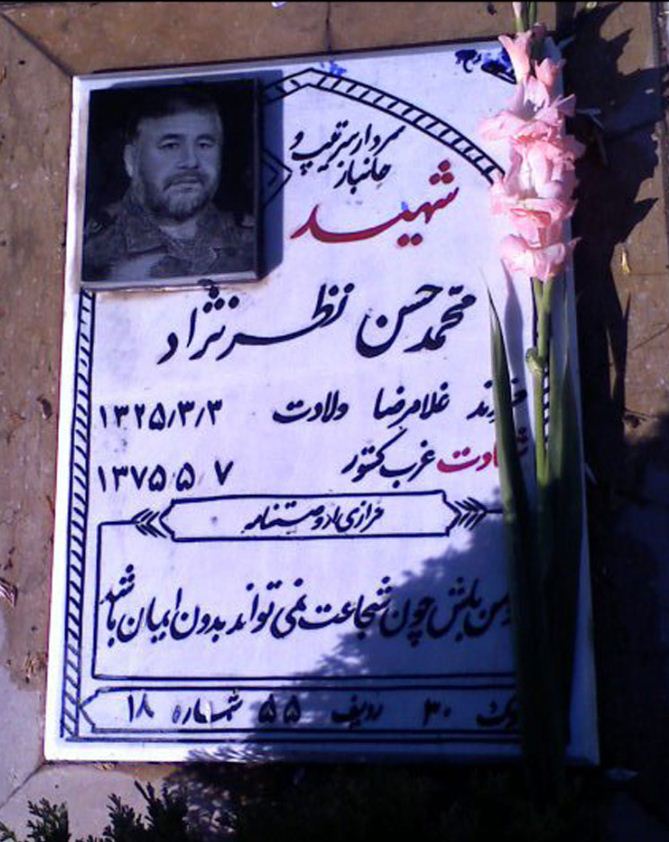 سردار سرتیپ و
جانباز
شهید
محمد حسن نظرنژاد
فرزند غلامرضا ولادت ۱۳۲۵/۳/۳
شهادت غرب کشور ۱۳۷۵ ۵ ۷
فرازی از وصیتنامه
باش چون شجاعت نمی تواند بدون ایمان باشد
بلوک ۳۰ ردیف ۵۵ شماره ۱۸